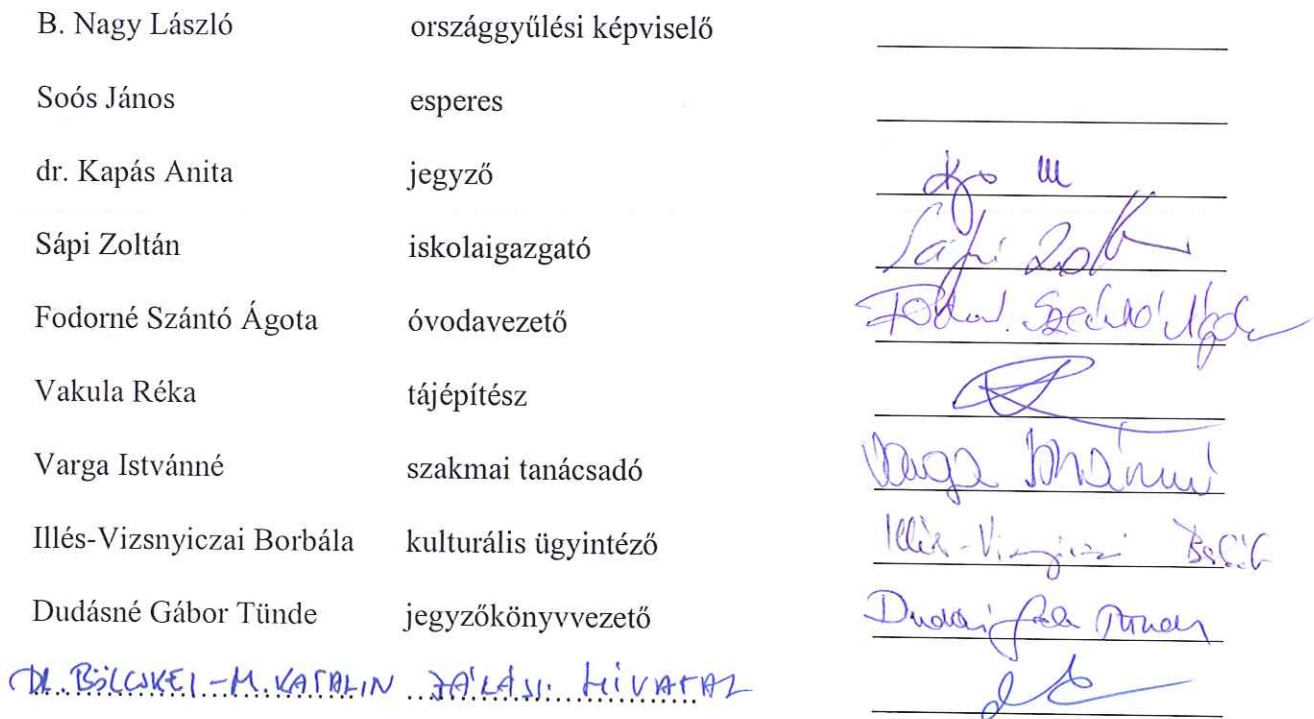 B. Nagy László országgyűlési képviselő
Soós János esperes
dr. Kapás Anita jegyző
Sápi Zoltán iskolaigazgató Sápi Zolt
Fodorné Szántó Ágota óvodavezető Fodorné Szántó Ágota
Vakula Réka tájépítész
Varga Istvánné szakmai tanácsadó Varga Istvánné
Illés-Vizsnyiczai Borbála kulturális ügyintéző Illés-Vizsnyiczai
Dudásné Gábor Tünde jegyzőkönyvvezető Dudásné Tünde
DR. BÖLCSKEI-M. KATALIN JÁRÁSI HIVATAL